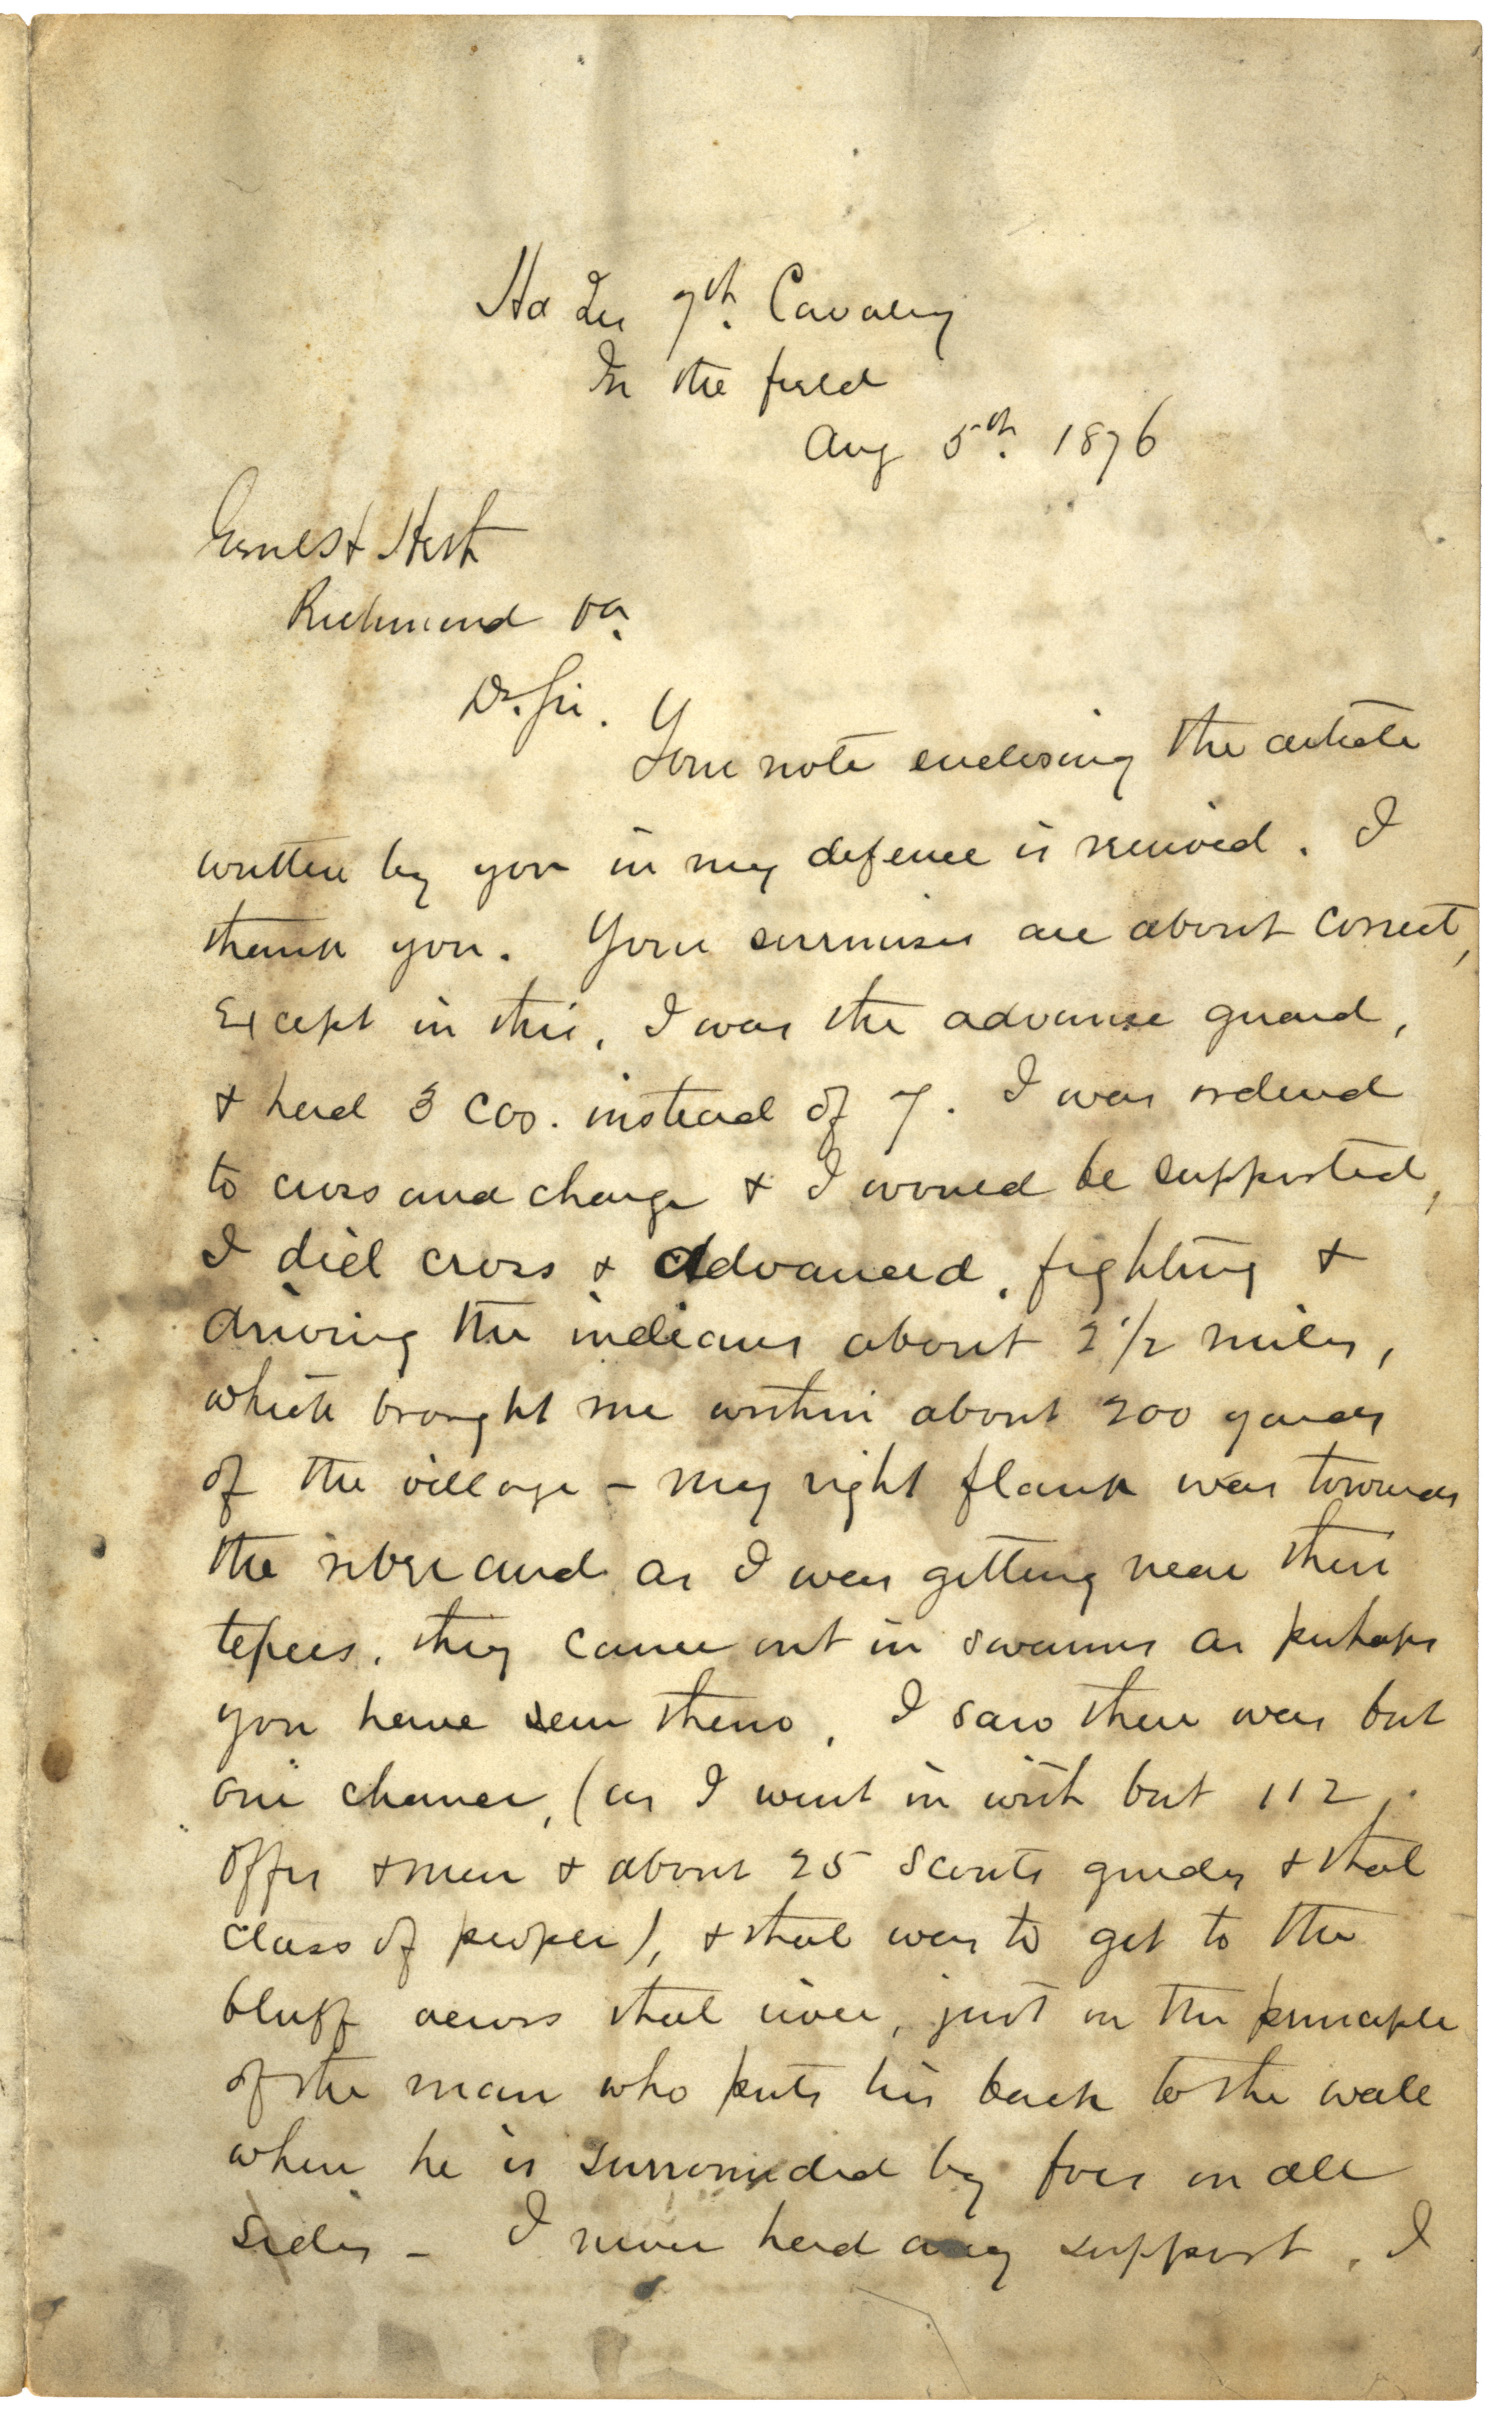 Hd Qrs 7th. Cavalry
In the field
Aug 5th. 1876
Ernest
Richmond Va.
Dr. Sir.
Your note enclosing the article
written by you in my defence is received. I
thank you. Your surmises are about correct,
Except in this, I was the advance guard,
& had 3 cos. instead of 7. I was ordered
to cross and charge & I would be supported,
I did cross & Advanced, fighting &
driving the indians about 2 1/2 miles,
which brought me within about 200 yards
of the village - my right flank was towards
the river and as I was getting near their
tepees, they came out in swarms as perhaps
you have seen them. I saw there was but
one chance, (as I went in with but 112
offrs & men & about 25 Scouts guides & that
class of people), & that was to get to the
bluff across that river, just on the principle
of the man who puts his back to the wall
when he is surrounded by foes on all
sides - I never had any support. I